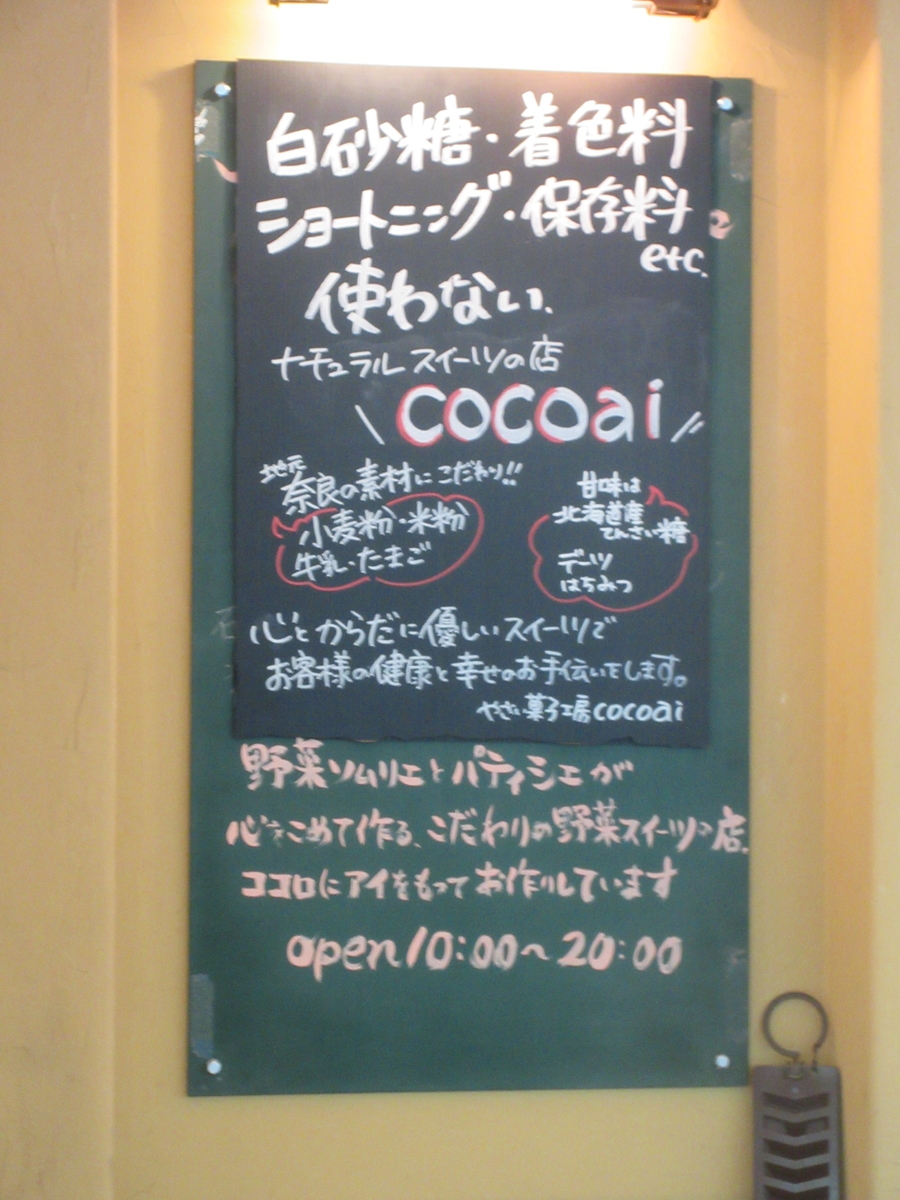 白砂糖・着色料
ショートニング・保存料
etc.
使わない.
ナチュラルスイーツの店
cocoai
地元
奈良の素材にこだわり!!
小麦粉・米粉
牛乳・たまご
甘味は
北海道産
てんさい糖
デーツ
はちみつ
心とからだに優しいスイーツで
お客様の健康と幸せのお手伝いをします。
やさい菓子工房cocoai
野菜ソムリエとパティシエが
心をこめて作る、こだわりの野菜スイーツの店.
ココロにアイをもってお作りしています
open 10:00〜20:00